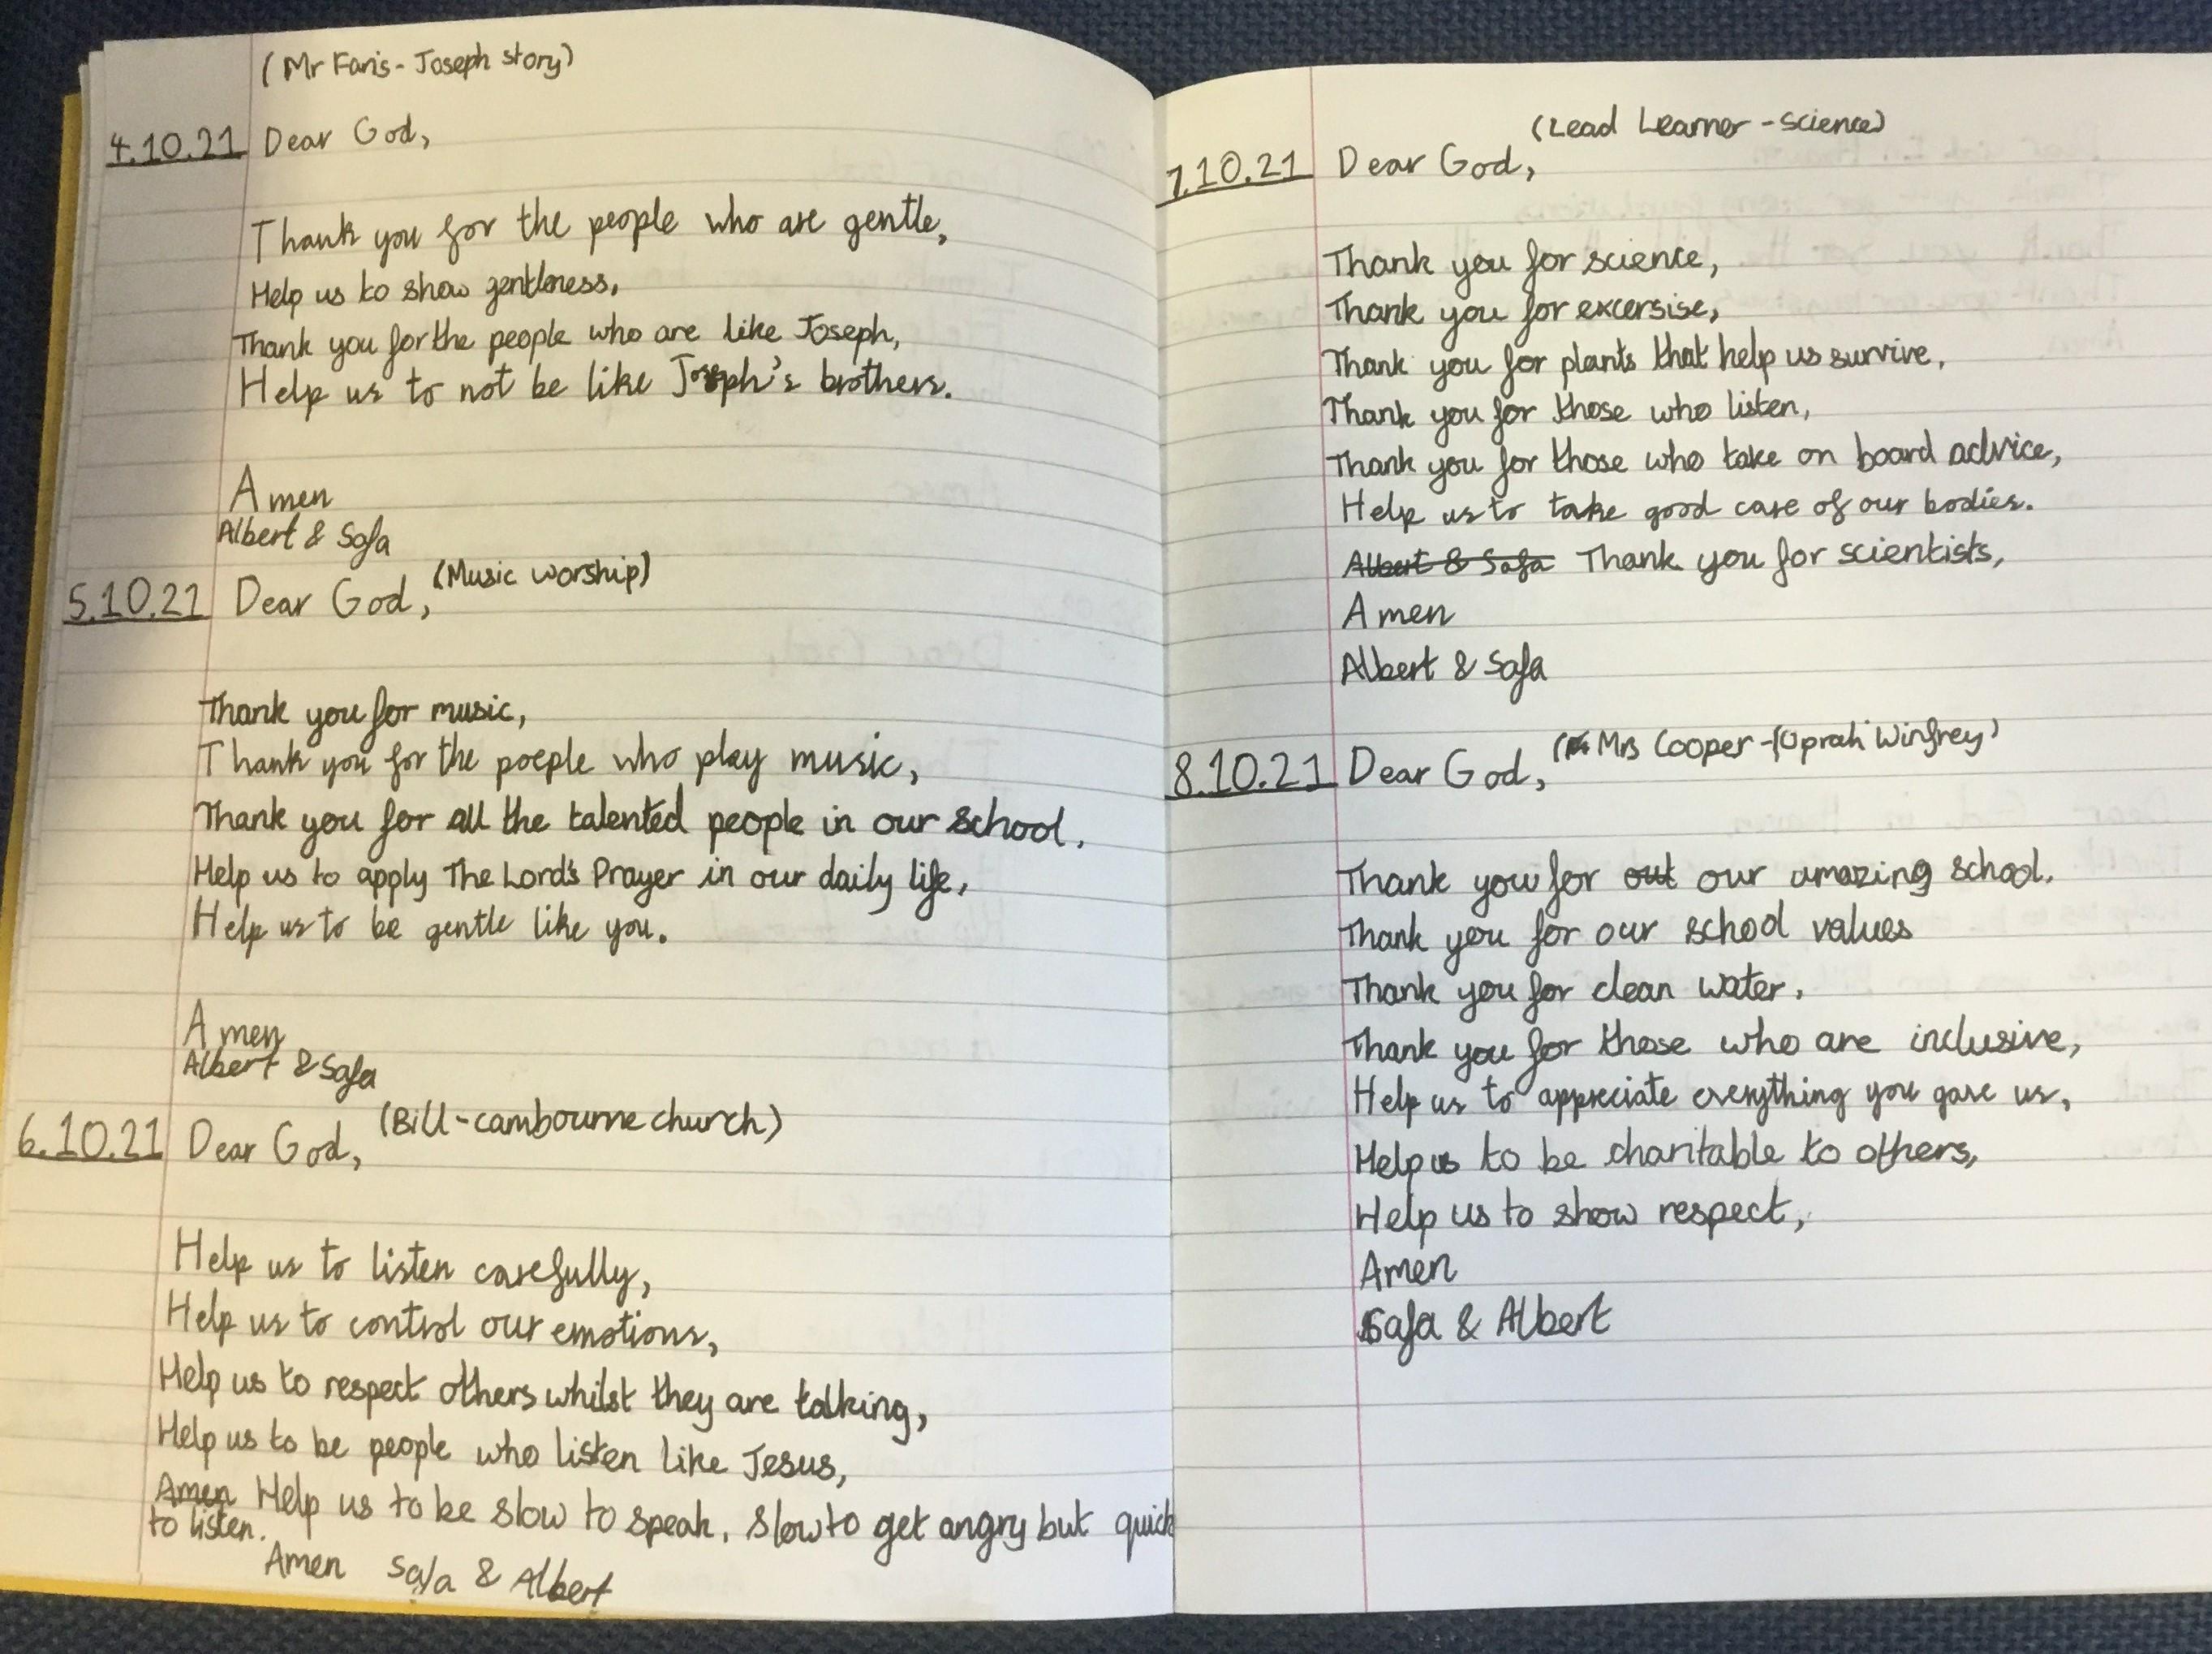 (Mr Faris - Joseph story)
4.10.21 Dear God,
Thank you for the people who are gentle,
Help us to show gentleness,
Thank you for the people who are like Joseph,
Help us to not be like Joseph's brothers.
Amen
Albert & Safa
5.10.21 Dear God, (Music worship)
Thank you for music,
Thank you for the poeple who play music,
Thank you for all the talented people in our school.
Help us to apply The Lord's Prayer in our daily life,
Help us to be gentle like you.
Amen
Albert & Safa
6.10.21 Dear God, (Bill - cambourne church)
Help us to listen carefully,
Help us to control our emotions,
Help us to respect others whilst they are talking,
Help us to be people who listen like Jesus,
Amen Help us to be slow to speak, slow to get angry but quick
to listen.
Amen Safa & Albert
(Lead Learner - science)
7.10.21 Dear God,
Thank you for science,
Thank you for excersise,
Thank you for plants that help us survive,
Thank you for those who listen,
Thank you for those who take on board advice,
Help us to take good care of our bodies.
Albert & Safa Thank you for scientists,
Amen
Albert & Safa
8.10.21 Dear God, (Mrs Cooper - (Oprah Winfrey)
Thank you for out our amazing school.
Thank you for our school values
Thank you for clean water.
Thank you for those who are inclusive,
Help us to appreciate everything you gave us,
Help us to be charitable to others,
Help us to show respect,
Amen
Safa & Albert